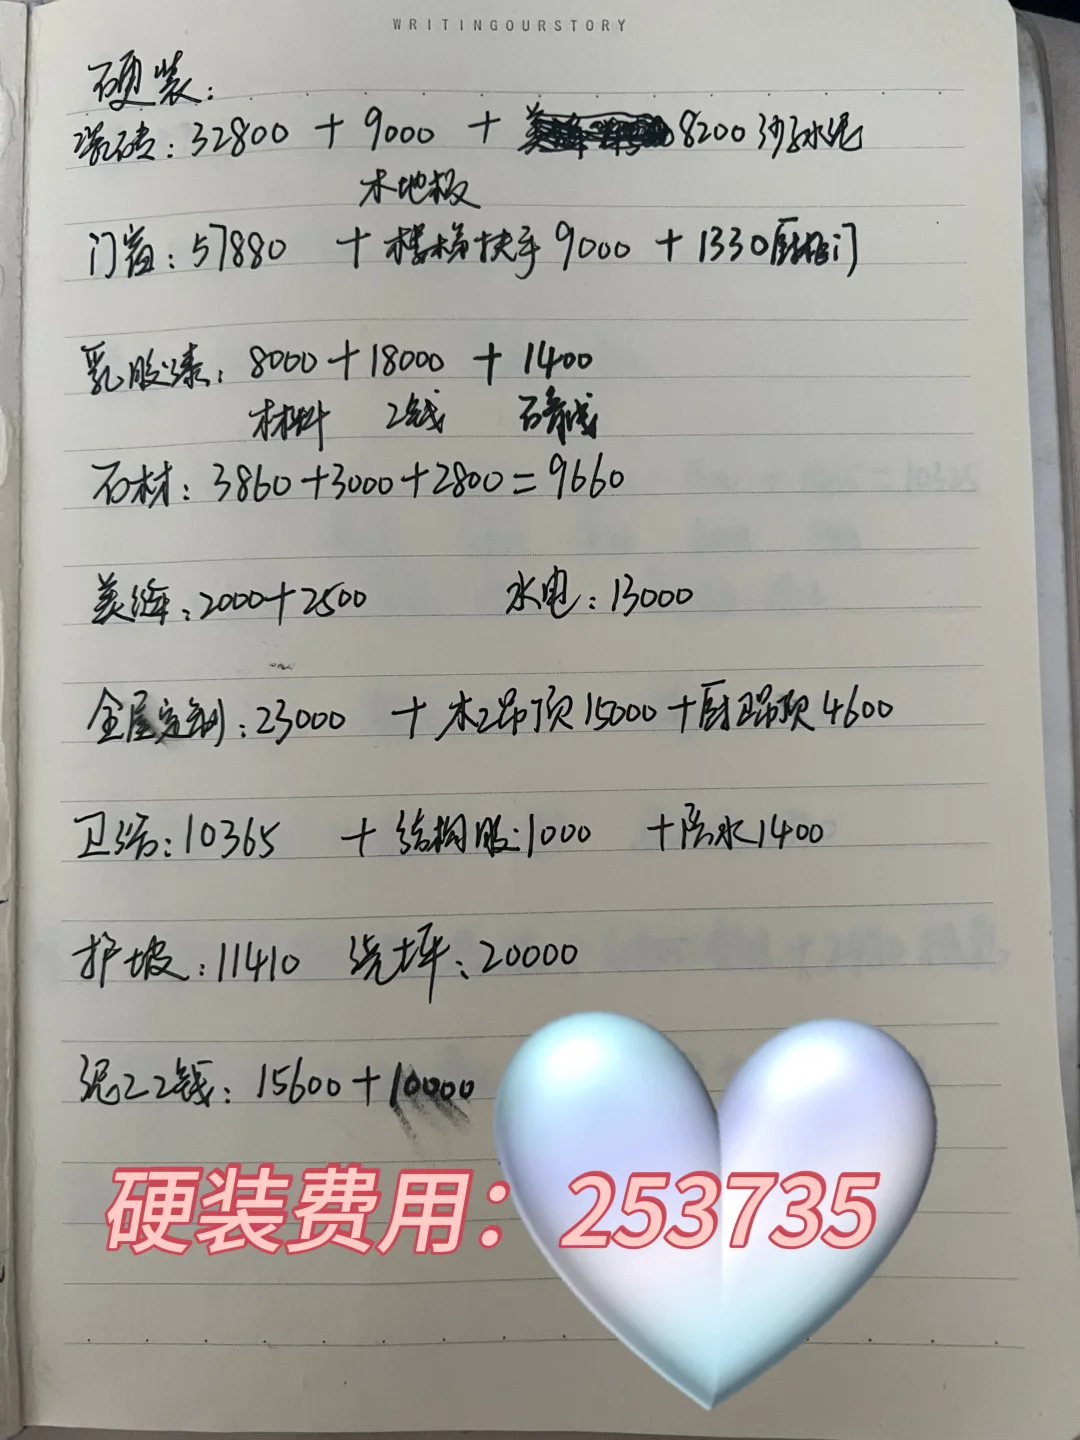 WRITINGOURSTORY
硬装：
瓷砖：32800 + 9000 + 8200沙子水泥
木地板
门窗：57880 + 楼梯扶手 9000 + 1330厨柜门
乳胶漆：8000+18000 + 1400
材料 工钱 石膏线
石材：3860+3000+2800=9660
美缝：2000+2500 水电：13000
全屋定制：23000 + 木工吊顶15000+厨卫吊顶4600
卫浴：10365 + 结构胶：1000 +防水1400
护坡：11410 浇坪：20000
泥工工钱：15600+10000
硬装费用：253735